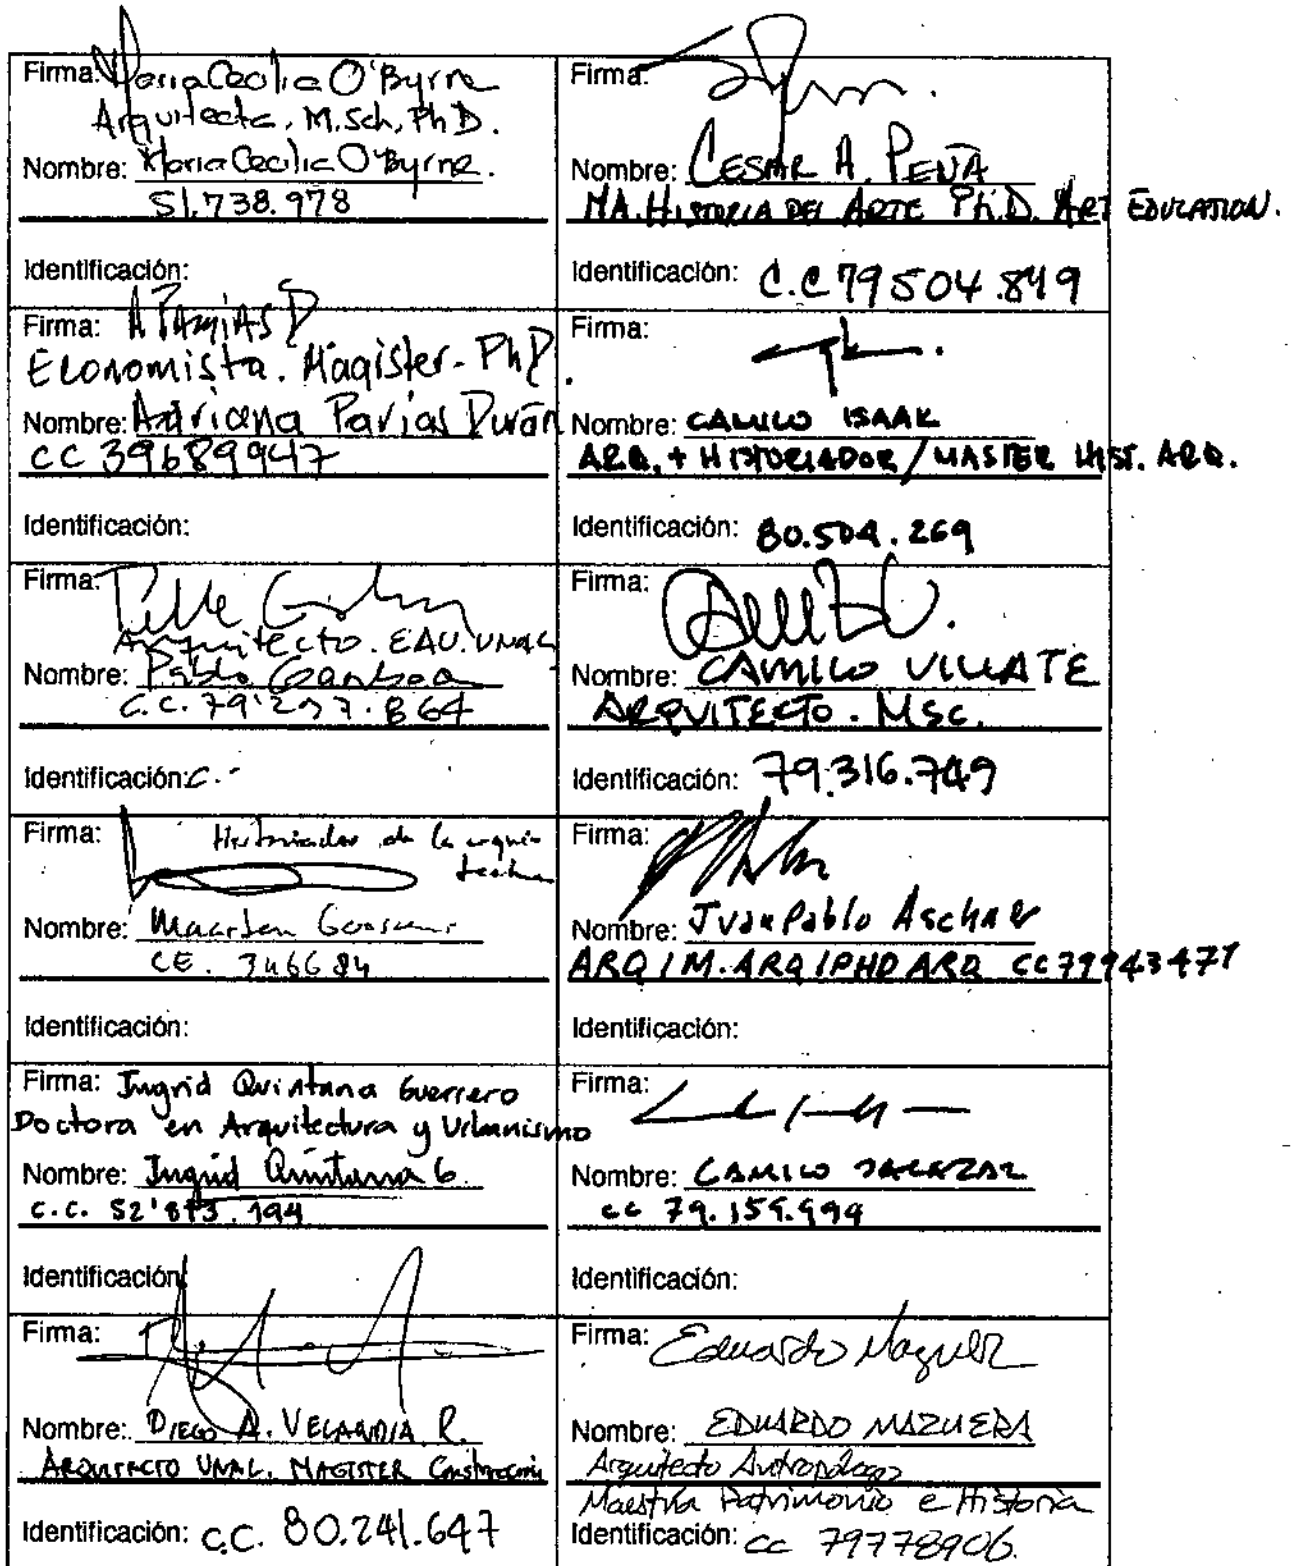 Firma: Maria Cecilia O'Byrne
Arquitecta, M.Sch, Ph D.
Nombre: Maria Cecilia O'Byrne.
51.738.978
Identificación:
Firma:
Nombre: CESAR A. PEÑA
MA. HISTORIA DEL ARTE Ph.D. ART EDUCATION.
Identificación: C.C 79504.849
Firma: A PARIAS D
Economista. Magister - PhD.
Nombre: Adriana Parias Durán
CC 39689947
Identificación:
Firma:
Nombre: CAMILO ISAAK
ARQ. + HISTORIADOR / MASTER HIST. ARQ.
Identificación: 80.504.269
Firma:
Arquitecto. EAU. UNAL
Nombre: Pablo Gamboa
C.C. 79'297.864
Identificación: C.-
Firma:
Nombre: CAMILO VILLATE
ARQUITECTO. MSc.
Identificación: 79.316.749
Firma: Historiador de la arqui-
tectura
Nombre: Maarten Goossens
CE. 346684
Identificación:
Firma:
Nombre: Juan Pablo Aschner
ARQ / M.ARQ / PHD ARQ CC79943471
Identificación:
Firma: Ingrid Quintana Guerrero
Doctora en Arquitectura y Urbanismo
Nombre: Ingrid Quintana G.
C.C. 52'873.194
Identificación
Firma:
Nombre: CAMILO SALAZAR
cc 79.159.999
Identificación:
Firma:
Nombre: DIEGO A. VELANDIA R.
ARQUITECTO UNAL. MAGISTER Construcción
Identificación: C.C. 80.241.647
Firma: Eduardo Mazuera
Nombre: EDUARDO MAZUERA
Arquitecto Antropólogo
Maestría Patrimonio e Historia
Identificación: cc 79778906.